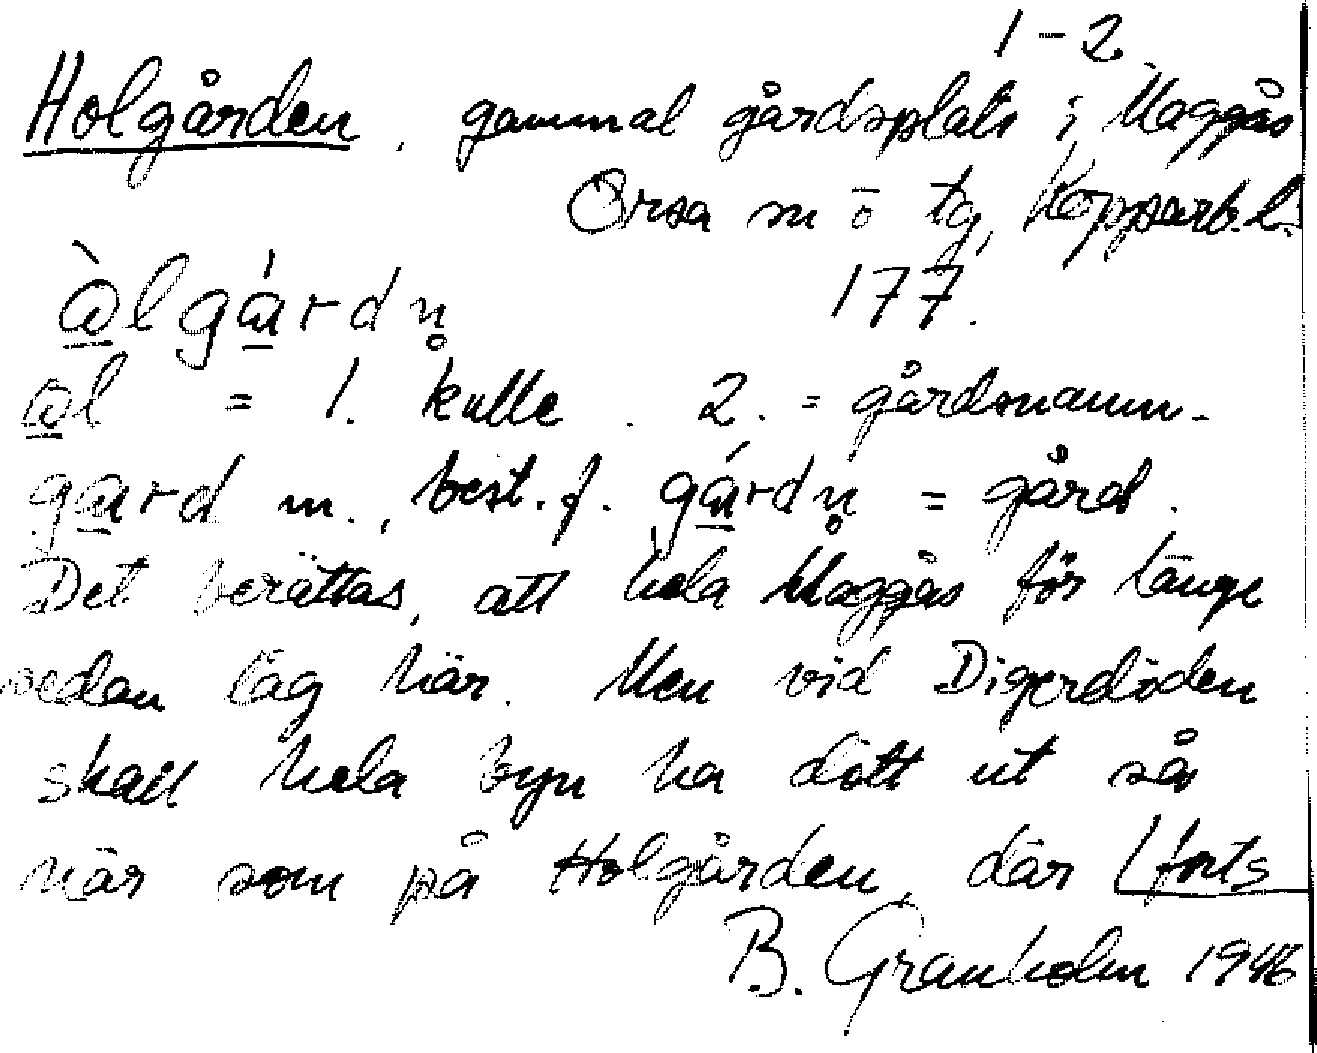 1-2
Holgården, gammal gårdsplats i Maggås
Orsa sn o tg, Kopparb. l.
àlgárdn̥ 177.
al = 1. kulle. 2. = gårdsnamn.
gard m., best. f. gárdn̥ = gård.
Det berättas, att hela Maggås för länge
sedan låg här. Men vid Digerdöden
skall hela byn ha dött ut så
när som på Holgården, där /forts
B. Granholm 1946